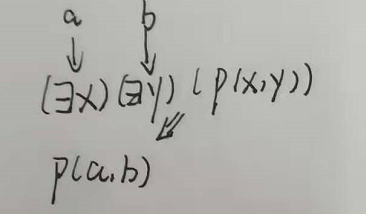 a b
(∃x)(∃y)(p(x,y))
p(a,b)